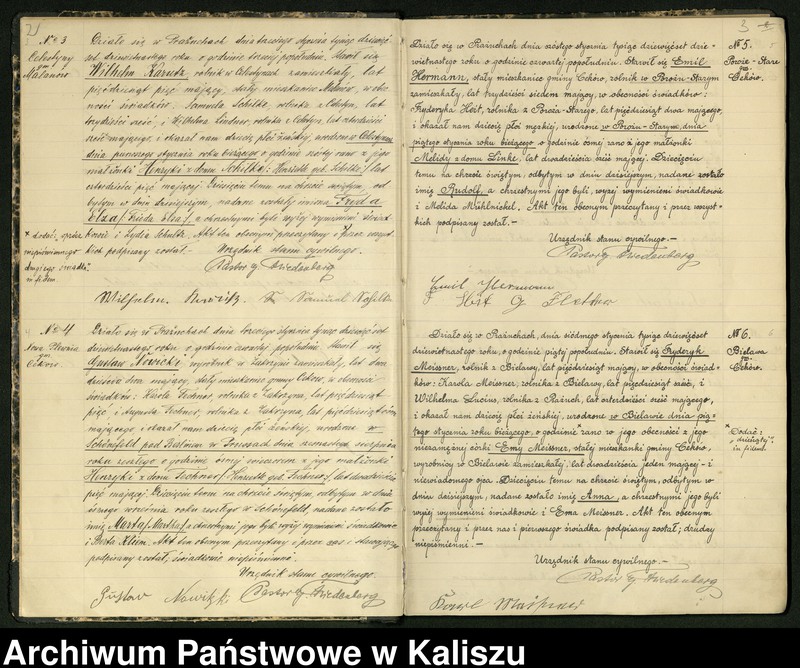 2
№ 3
Celestyny
Działo się w Prażuchach dnia trzeciego stycznia tysiąc dziewięć-
set dziewiętnastego roku o godzinie trzeciej popołudniu. Stawił się
Wilhelm rolnik w Celestynach zamieszkały, lat
pięćdziesiąt pięć mający, stały mieszkaniec w obec-
ności świadków: Samuela rolnika z Celestyn, lat
trzydzieści sześć, i Wilhelma rolnika z Celestyn, lat
sześć mającego, i okazał nam dziecię płci żeńskiej, urodzone w Celestynach
dnia pierwszego stycznia roku bieżącego o godzinie szóstej rano z jego
małżonki Henryki z domu lat
czterdzieści pięć mającej. Dziecięciu temu na chrzcie świętym, od
bytym w dniu dzisiejszym, nadane zostały imiona Frida
Elza / Frieda Elsa /, a chrzestnymi byli wyżej wymienieni świad-
kowie i Lydia Schultz. Akt ten obecnym przeczytany i przez wszyst-
kich podpisany został.—
× dodać, oprócz
niepiśmiennego
drugiego świadka,
in fidem
Urzędnik stanu cywilnego.
Pastor G Friedenberg
Wilhelm
№ 4
Cekow.
Działo się w Prażuchach dnia trzeciego stycznia tysiąc dziewięćset
dziewiętnastego roku o godzinie czwartej popołudniu. Stawił się
Gustaw Nowicki, wyrobnik w zamieszkały, lat dwa
dzieścia dwa mający, stały mieszkaniec gminy Cekow, w obecności
świadków: Karola rolnika z lat pięćdziesiąt
pięć i Augusta rolnika z lat pięćdziesiąt
mającego i okazał nam dziecię płci żeńskiej, urodzone w
Schönefeld pod Berlinem w Prusach dnia czwartego sierpnia
roku zeszłego o godzinie ósmej wieczorem z jego małżonki
Henryki z domu lat dwadzieścia
pięć mającej. Dziecięciu temu na chrzcie świętym, odbytym w dniu
września roku zeszłego w Schönefeld nadane zostało
imię Marta / Martha /, a chrzestnymi jego byli wyżej wymienieni świadkowie
i Berta Klim. Akt ten obecnym przeczytany i przez nas i stawającego
podpisany został, świadkowie niepiśmienni.
Urzędnik stanu cywilnego.
Pastor G Friedenberg
Gustav Nowitzki
3
№ 5.
Powie-Stare
gm.
Ceków.
Działo się w Prażuchach dnia szóstego stycznia tysiąc dziewięćset dzie-
więtnastego roku o godzinie czwartej popołudniu. Stawił się Emil
Hermann, stały mieszkaniec gminy Ceków, rolnik w Powiu-Starym
zamieszkały, lat trzydzieści siedem mający, w obecności świadków:
Fryderyka Heit, rolnika z Powia-Starego, lat pięćdziesiąt dwa mającego,
i okazał nam dziecię płci męskiej, urodzone w Powiu-Starym, dnia
piątego stycznia roku bieżącego o godzinie ósmej rano z jego małżonki
Melidy z domu Linke, lat dwadzieścia sześć mającej. Dziecięciu
temu na chrzcie świętym, odbytym w dniu dzisiejszym, nadane zostało
imię Rudolf, a chrzestnymi jego byli, wyżej wymienieni świadkowie
i Melida Mühlnickel. Akt ten obecnym przeczytany i przez wszyst-
kich podpisany został.—
Urzędnik stanu cywilnego.—
Pastor G Friedenberg
Emil Hermann
F Heit G
№ 6.
Bielawa
gm.
Ceków.
Działo się w Prażuchach, dnia siódmego stycznia tysiąc dziewięćset
dziewiętnastego roku, o godzinie piątej popołudniu. Stawił się Fryderyk
Meissner, rolnik z Bielawy, lat pięćdziesiąt mający, w obecności świad-
ków: Karola Meissner, rolnika z Bielawy, lat pięćdziesiąt sześć, i
Wilhelma Lucius, rolnika z Prażuch, lat czterdzieści sześć mającego,
i okazał nam dziecię płci żeńskiej, urodzone w Bielawie dnia pią-
tego stycznia roku bieżącego, o godzinie × rano w jego obecności z jego
niezamężnej córki Emy Meissner, stałej mieszkanki gminy Ceków,
wyrobnicy w Bielawie zamieszkałej, lat dwadzieścia jeden mającej — i
niewiadomego ojca. Dziecięciu temu na chrzcie świętym, odbytym w
dniu dzisiejszym, nadane zostało imię Anna, a chrzestnymi jego byli
wyżej wymienieni świadkowie i Ema Meissner. Akt ten obecnym
przeczytany i przez nas i pierwszego świadka podpisany został; drudzy
niepiśmienni.—
× Dodać:
„dziesiątej”,
in fidem.
Urzędnik stanu cywilnego.—
Pastor G Friedenberg
Archiwum Państwowe w Kaliszu